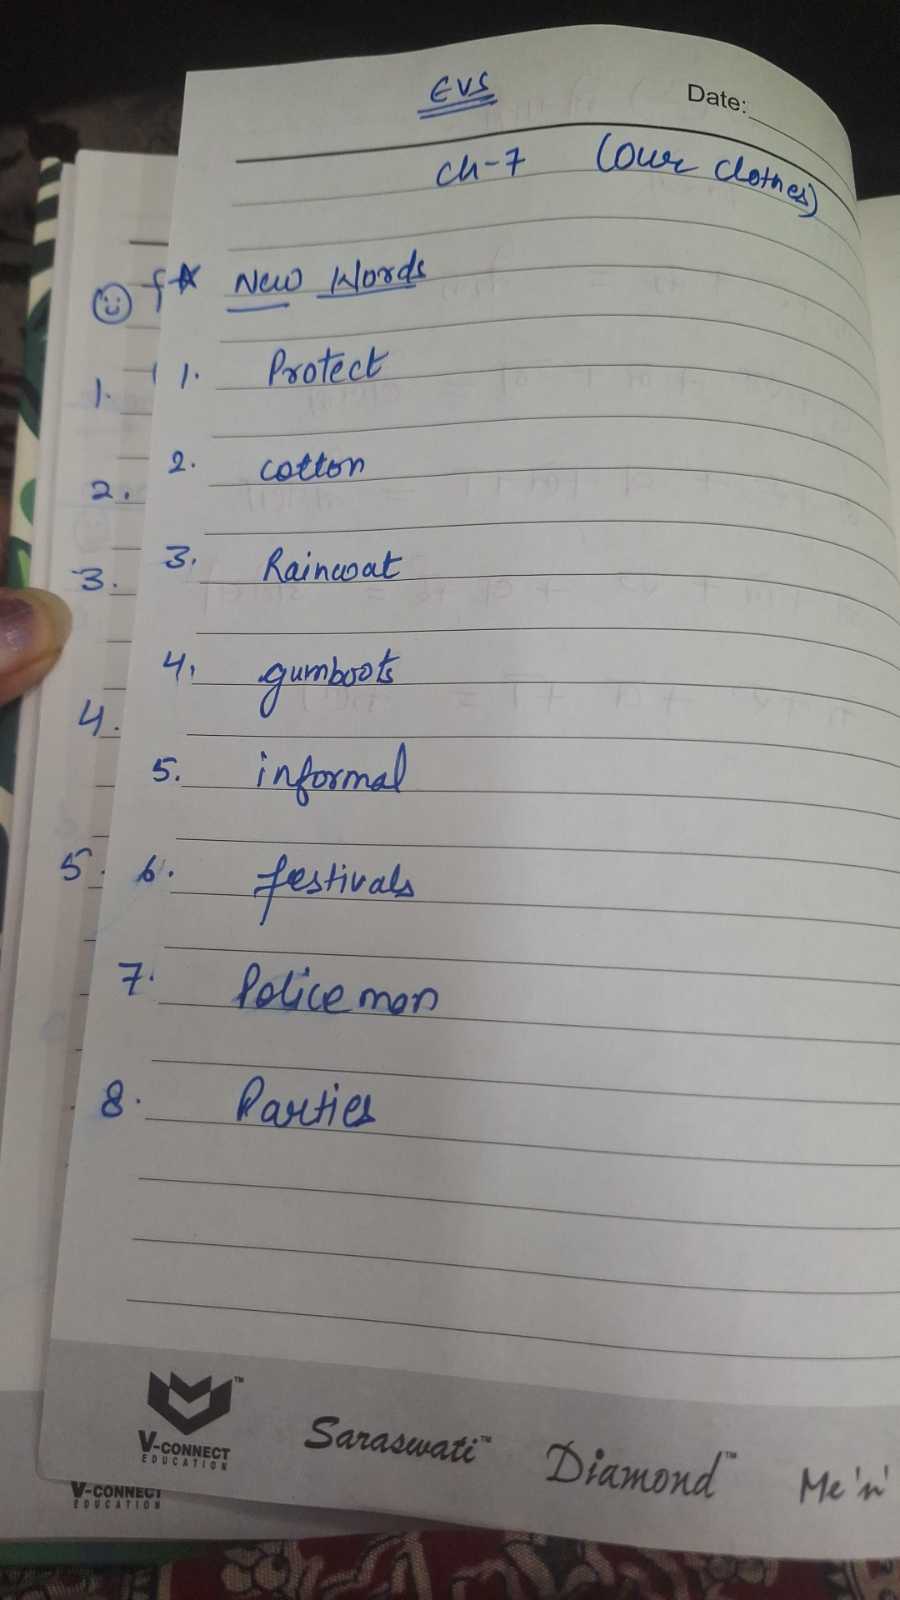 EVS
Date:
Ch-7 (Our Clothes)
New Words
1. Protect
2. cotton
3. Raincoat
4. gumboots
5. informal
6. festivals
7. Policeman
8. Parties
1.
2.
3.
4.
5.
V-CONNECT
EDUCATION
Saraswati™ Diamond™ Me'n'
V-CONNECT
EDUCATION